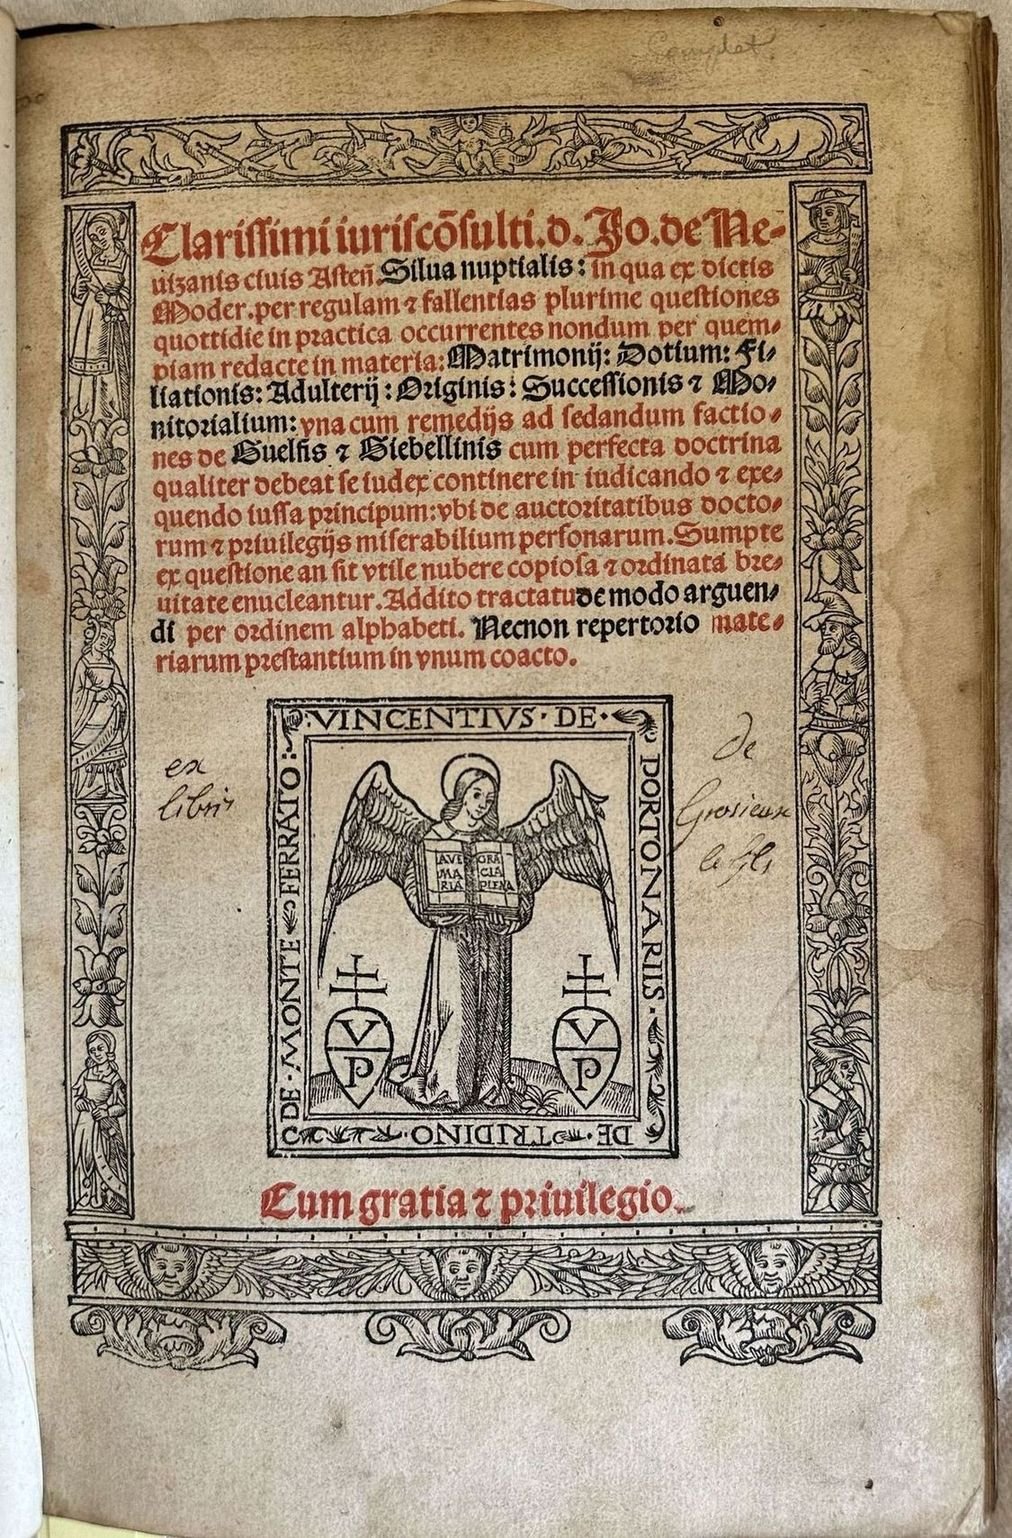 Complet
Clarissimi iuriscōsulti.d. Jo.de Ne-
uizanis ciuis Asteñ. Silua nuptialis: in qua ex dictis
Moder.per regulam ⁊ fallentias plurime questiones
quottidie in practica occurrentes nondum per quem-
diam redacte in materia: Matrimonij: Dotium: Fi-
liationis: Adulterij: Originis: Successionis ⁊ Mo-
nitorialium: vna cum remedijs ad sedandum factio-
nes de Guelfis ⁊ Giebellinis cum perfecta doctrina
qualiter debeat se iudex continere in iudicando ⁊ exe-
quendo iussa principum: vbi de auctoritatibus docto-
rum ⁊ priuilegijs miserabilium personarum. Sumpte
ex questione an sit vtile nubere copiosa ⁊ ordinata bre-
uitate enucleantur. Addito tractatu de modo arguen-
di per ordinem alphabeti. Necnon repertorio mate-
riarum prestantium in vnum coacto.
VINCENTIVS · DE ·
PORTONARIIS ·
DE · TRIDINO
DE · MONTE FERRATO :
AVE
MA
RIA
GRA
CIA
PLENA
V
P
V
P
ex
libris
de
le fils
Cum gratia ⁊ priuilegio.